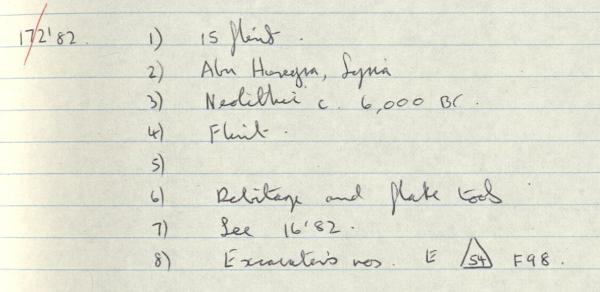 172'82. 1) 15 flint.
2) Abu Hureyra, Syria
3) Neolithic c. 6,000 BC.
4) Flint.
5)
6) Debitage and flake tools
7) See 16'82.
8) Excavators nos. E 54 F98.